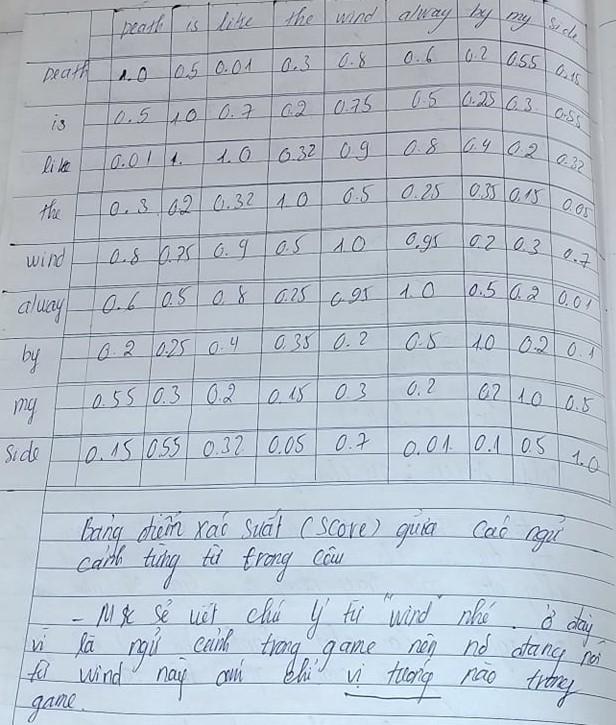 Death is like the wind alway by my side
Death 1.0 0.5 0.01 0.3 0.8 0.6 0.2 0.55 0.15
is 0.5 1.0 0.7 0.2 0.75 0.5 0.25 0.3 0.55
like 0.01 1. 1.0 0.32 0.9 0.8 0.4 0.2 0.32
the 0.3 0.2 0.32 1.0 0.5 0.25 0.35 0.15 0.05
wind 0.8 0.75 0.9 0.5 1.0 0.95 0.2 0.3 0.7
alway 0.6 0.5 0.8 0.25 0.95 1.0 0.5 0.2 0.01
by 0.2 0.25 0.4 0.35 0.2 0.5 1.0 0.2 0.1
my 0.55 0.3 0.2 0.15 0.3 0.2 0.2 1.0 0.5
Side 0.15 0.55 0.32 0.05 0.7 0.01 0.1 0.5 1.0
Bảng điểm xác suất (Score) giữa các ngữ
cảnh từng từ trong câu
- sẽ chú ý từ "wind" nhé. ở đây
vì là ngữ cảnh trong game nên nó đang nói
từ wind này ám chỉ vị tướng nào trong
game.